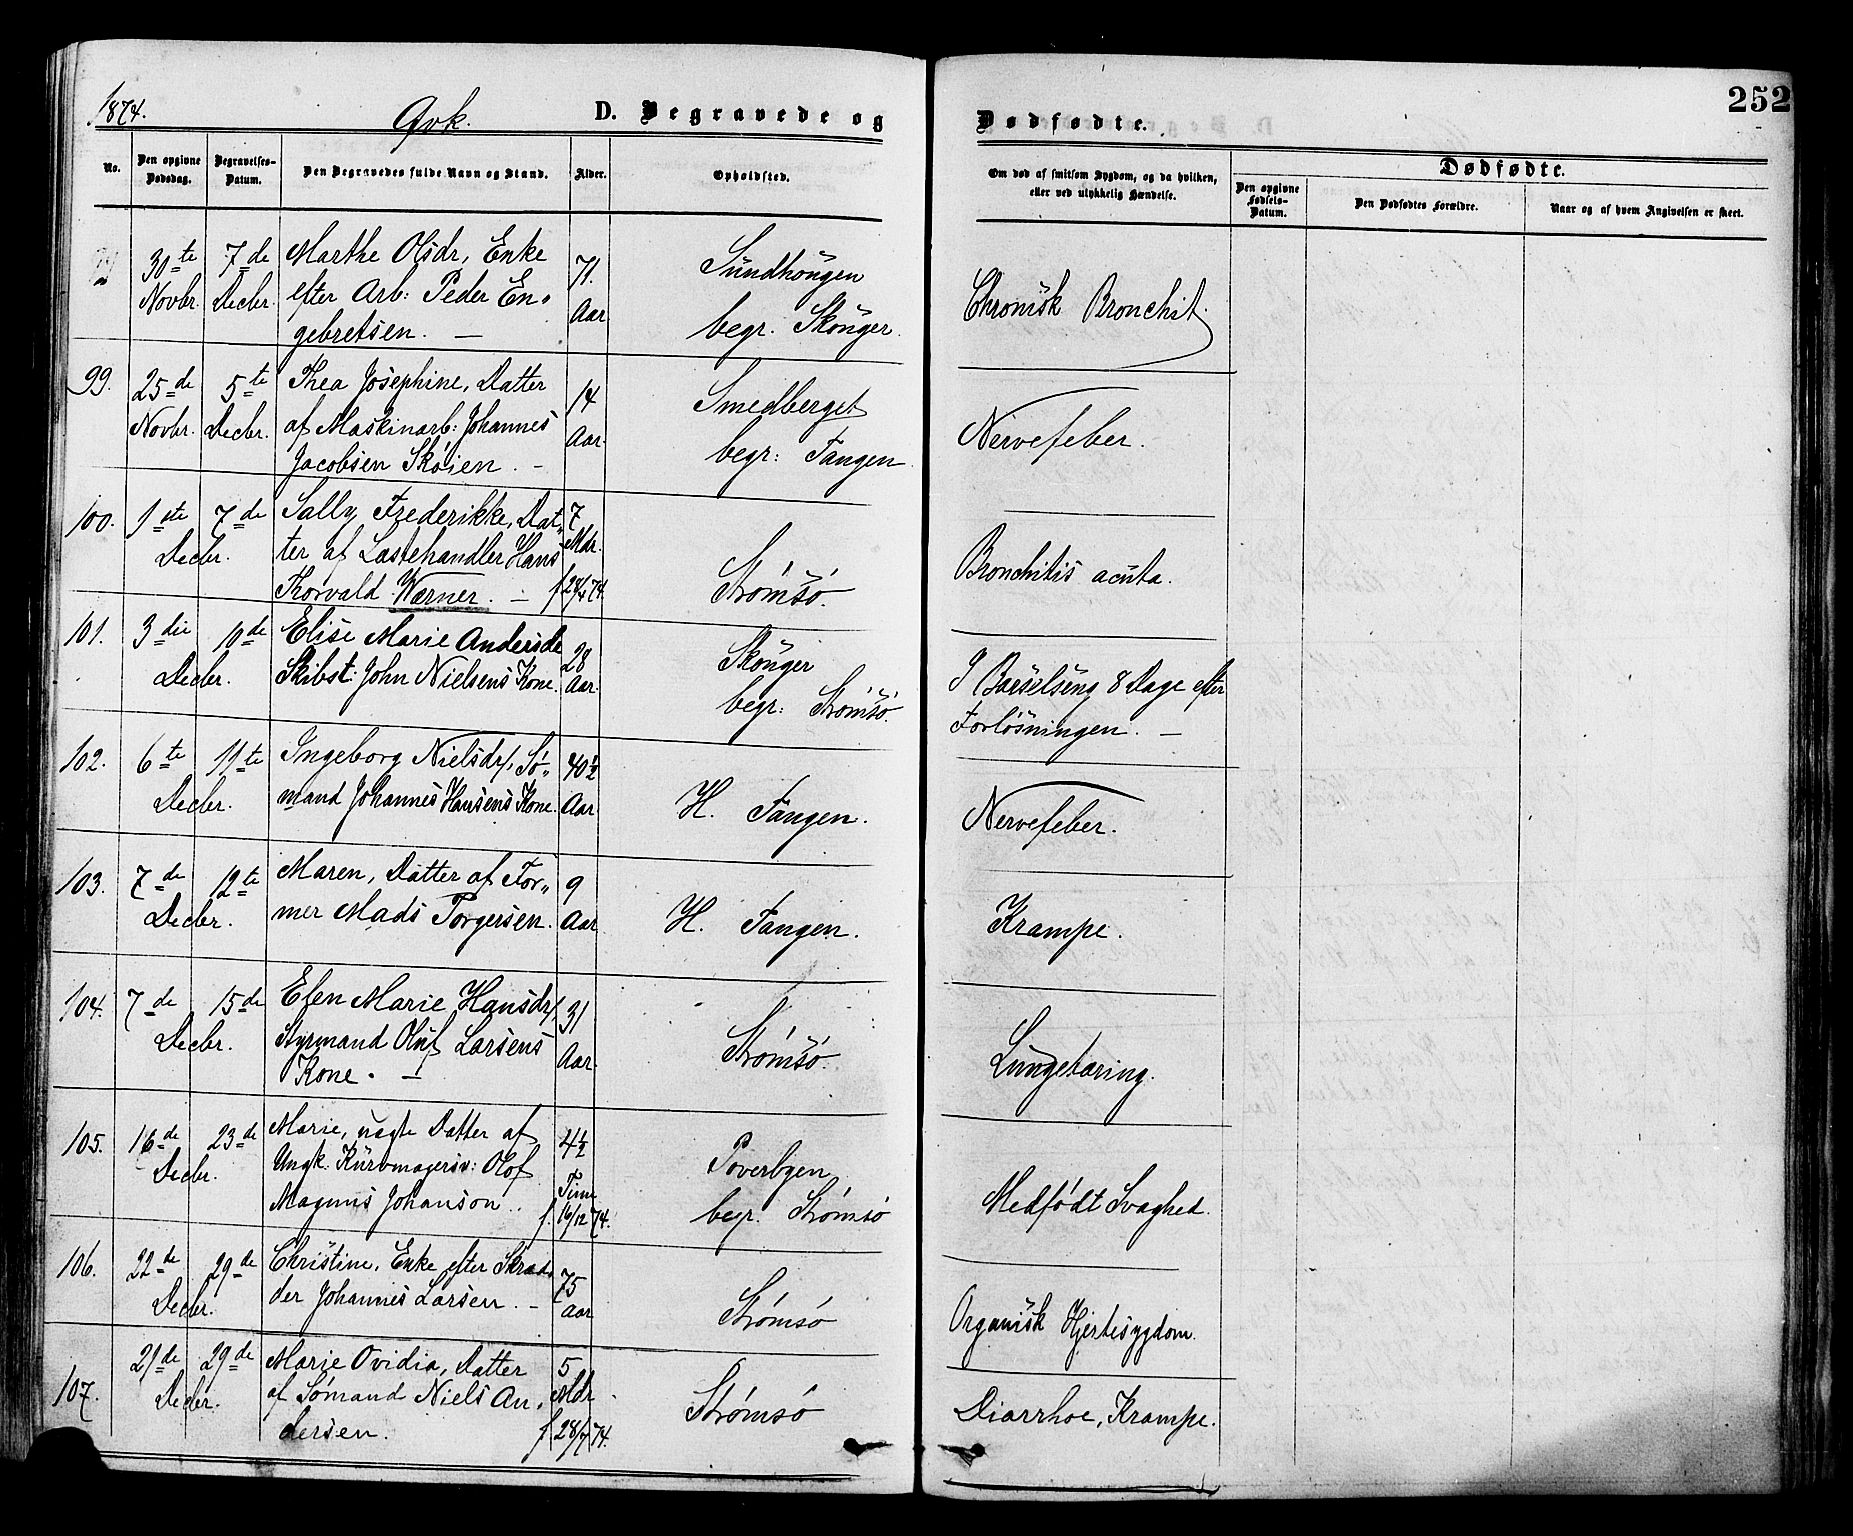 1874.
Qvk.
D. Begravede og
Dødfødte.
252
No.
Den opgivne Dødsdag.
Begravelses-Datum.
Den Begravedes fulde Navn og Stand.
Alder.
Opholdsted.
Om død af smitsom Sygdom, og da hvilken, eller ved ulykkelig Hændelse.
Dødfødte.
Den opgivne Fødsels-Datum.
Den Dødfødtes Forældre.
Naar og af hvem Angivelsen er skeet.
30te 7de Marthe Olsdr, Enke 71.
Novbr. Decbr. efter Arb: Peder En„ Aar
gebretsen. —
Sundhougen
begr. Skouger.
Chronisk Bronchit.
99. 25de 5te Thea Josephine, Datter 14
Novbr. Decbr. af Maskinarb: Johannes Aar.
Jacobsen Skoien. -
Smedberget
begr: Tangen
Nervefeber.
100. 1ste 7de Sally Frederikke, Dat„ 7
Decbr. ter af Lastehandler Hans Mdr.
Thorvald Wærner. — f 28/4 74.
Strømsø.
Bronchitis acuta.
101. 3die 10de Elise Marie Andersdr 28
Decbr. Skibst: John Nielsens Kone. Aar.
Skouger
begr: Strømsø.
I Barselseng 8 Dage efter
Forløsningen. —
102. 6te 11te Ingeborg Nielsdr, Sø„ 40½
Decbr. mand Johannes Hansens Kone. Aar.
H. Tangen.
Nervefeber.
103. 7de 12te Maren, Datter af For„ 9
Decbr. mer Mads Torgersen. Aar
H. Tangen.
Krampe.
104. 7de 15de Elen Marie Hansdr, 31
Decbr. Styrmand Oluf Larsens Aar.
Kone. —
Strømsø.
Lungetæring.
105. 16de 23de Marie, uægte Datter af 4½
Decbr. Ungk: Kurvmagersv: Olof Time
Magnus Johanson. f. 16/12 74.
Poverbyen,
begr. Strømsø
Medfødt Svaghed.
106. 22de 29de Christine, Enke efter Skræd„ 75
Decbr. der Johannes Larsen. — Aar
Strømsø
Organisk Hjertesygdom.
107. 21de 29de Marie Ovidia, Datter 5
Decbr. af Sømand Niels An„ Mdr
dersen. f 28/7 74.
Strømsø
Diarrhoe, Krampe.